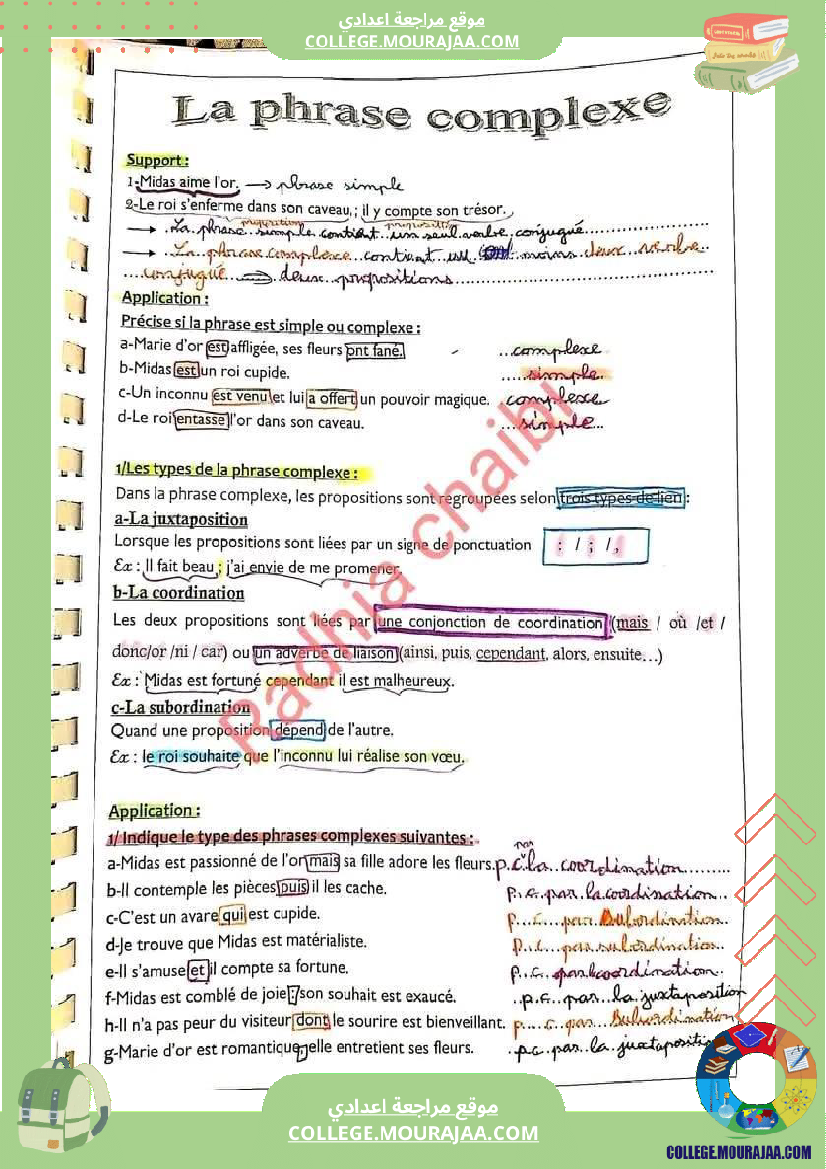 موقع مراجعة اعدادي
COLLEGE.MOURAJAA.COM
La phrase complexe
Support :
1-Midas aime l'or. → phrase simple
2-Le roi s'enferme dans son caveau, ; il y compte son trésor.
proposition
→ La phrase simple contient un seul verbe conjugué
→ La phrase complexe contient au moins deux verbe
conjugué → deux propositions
Application :
Précise si la phrase est simple ou complexe :
a-Marie d'or est affligée, ses fleurs ont fané. complexe
b-Midas est un roi cupide. simple
c-Un inconnu est venu et lui a offert un pouvoir magique. complexe
d-Le roi entasse l'or dans son caveau. simple
1/Les types de la phrase complexe :
Dans la phrase complexe, les propositions sont regroupées selon trois types de lien :
a-La juxtaposition
Lorsque les propositions sont liées par un signe de ponctuation : / ; / ,
Ex : Il fait beau ; j'ai envie de me promener.
b-La coordination
Les deux propositions sont liées par une conjonction de coordination (mais / où /et /
donc/or /ni / car) ou un adverbe de liaison (ainsi, puis, cependant, alors, ensuite…)
Ex : Midas est fortuné cependant il est malheureux.
c-La subordination
Quand une proposition dépend de l'autre.
Ex : le roi souhaite que l'inconnu lui réalise son vœu.
Application :
1/ Indique le type des phrases complexes suivantes :
a-Midas est passionné de l'or mais sa fille adore les fleurs. p.c par la coordination
b-Il contemple les pièces puis il les cache. p.c. par la coordination
c-C'est un avare qui est cupide. p.c. par subordination
d-Je trouve que Midas est matérialiste. p.c. par subordination
e-Il s'amuse et il compte sa fortune. p.c. par coordination
f-Midas est comblé de joie : son souhait est exaucé. p.c. par la juxtaposition
h-Il n'a pas peur du visiteur dont le sourire est bienveillant. p.c. par Subordination
g-Marie d'or est romantique, elle entretient ses fleurs. p.c par la juxtaposition
Radhia chaibi
موقع مراجعة اعدادي
COLLEGE.MOURAJAA.COM
COLLEGE.MOURAJAA.COM